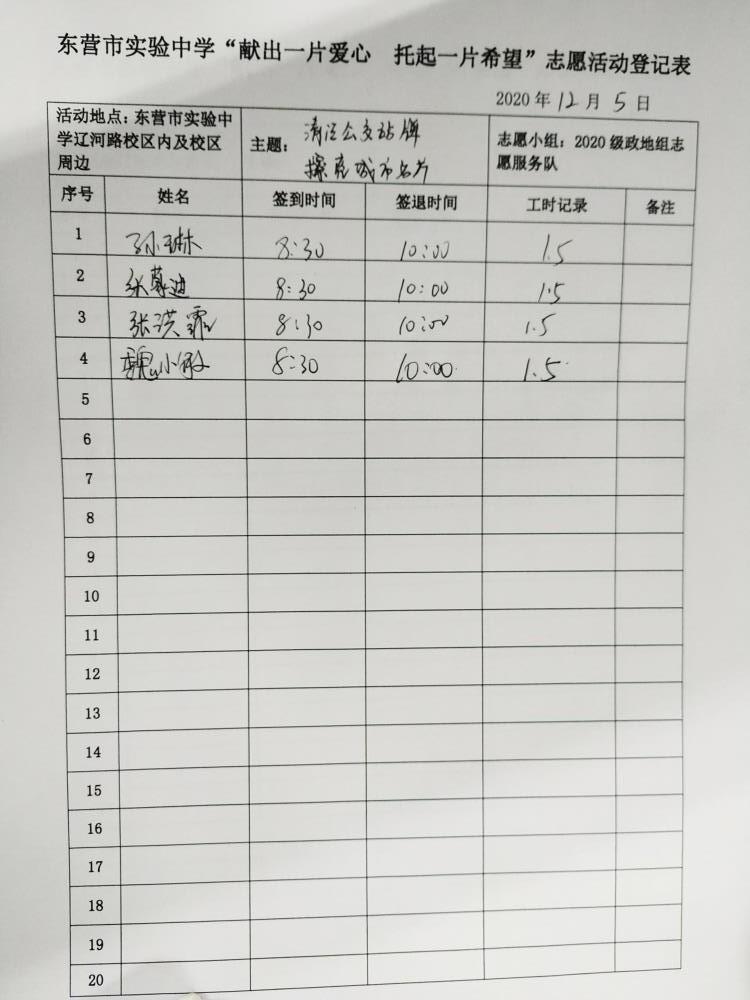 东营市实验中学“献出一片爱心 托起一片希望”志愿活动登记表
2020 年 12 月 5 日
活动地点：东营市实验中
学辽河路校区内及校区
周边
主题：
清洁公交站牌
擦亮城市名片
志愿小组：2020 级政地组志
愿服务队
序号 姓名 签到时间 签退时间 工时记录 备注
1 孙琳 8:30 10:00 1.5
2 张蒙迪 8:30 10:00 1.5
3 张洪霏 8:30 10:00 1.5
4 魏小敏 8:30 10:00 1.5
5
6
7
8
9
10
11
12
13
14
15
16
17
18
19
20